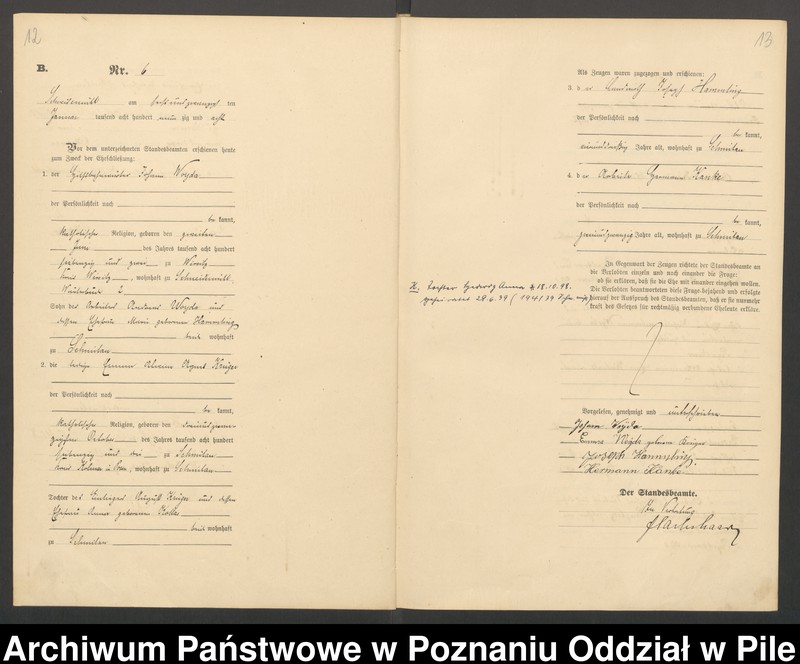 12
B.
Nr. 6
Schneidemühl am sechsundzwanzigsten
Januar tausend acht hundert neunzig und acht
Vor dem unterzeichneten Standesbeamten erschienen heute
zum Zweck der Eheschließung:
1. der Johann Woyda
der Persönlichkeit nach
be kannt,
katholischer Religion, geboren den zweiten
Juni des Jahres tausend acht hundert
siebenzig und zwei zu Wirsitz
Kreis Wirsitz, wohnhaft zu Schneidemühl
2
Sohn des Arbeiter Andreas Woyda und
dessen Ehefrau Marie geborenen Hammling
beide wohnhaft
zu Schmilau
2. die ledige Emma Agnes Krüger
der Persönlichkeit nach
be kannt,
katholischer Religion, geboren den
October des Jahres tausend acht hundert
siebenzig und drei zu Schmilau
Kreis Kolmar i. Pos., wohnhaft zu Schmilau
Tochter des August Krüger und dessen
Ehefrau Anna geborenen
beide wohnhaft
zu Schmilau
13
Als Zeugen waren zugezogen und erschienen:
3. der Landwirth Joseph Hammling
der Persönlichkeit nach
be kannt,
Jahre alt, wohnhaft zu Schmilau
4. der Hermann Hanke
der Persönlichkeit nach
be kannt,
zweiundzwanzig Jahre alt, wohnhaft zu Schmilau
In Gegenwart der Zeugen richtete der Standesbeamte an
die Verlobten einzeln und nach einander die Frage:
ob sie erklären, daß sie die Ehe mit einander eingehen wollen.
Die Verlobten beantworteten diese Frage bejahend und erfolgte
hierauf der Ausspruch des Standesbeamten, daß er sie nunmehr
kraft des Gesetzes für rechtmäßig verbundene Eheleute erkläre.
H. Tochter Hedwig Anna * 18.10.98.
28.4.39 (194/39
Vorgelesen, genehmigt und unterschrieben
Johann Woyda
Emma Woyda geborene Krüger
Joseph Hammling
Hermann Hanke
Der Standesbeamte.
In Vertretung
Archiwum Państwowe w Poznaniu Oddział w Pile